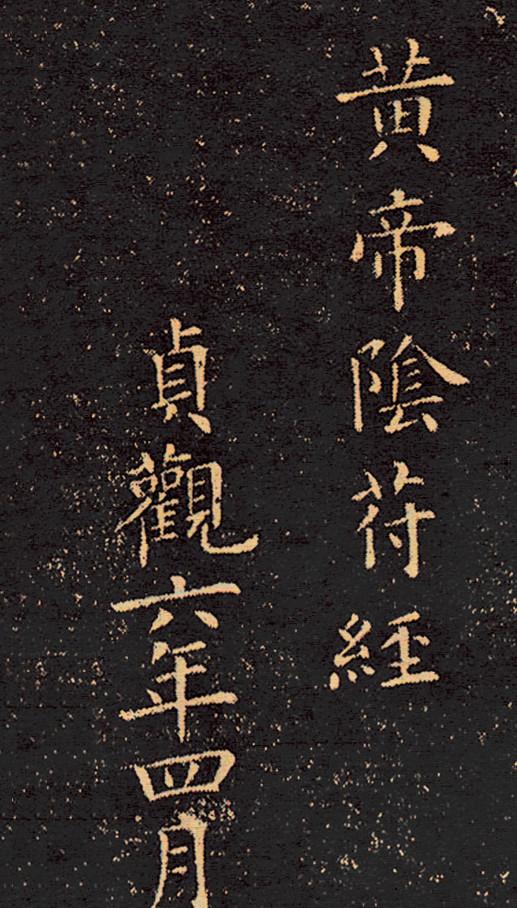 黃帝陰苻經
貞觀六年四月